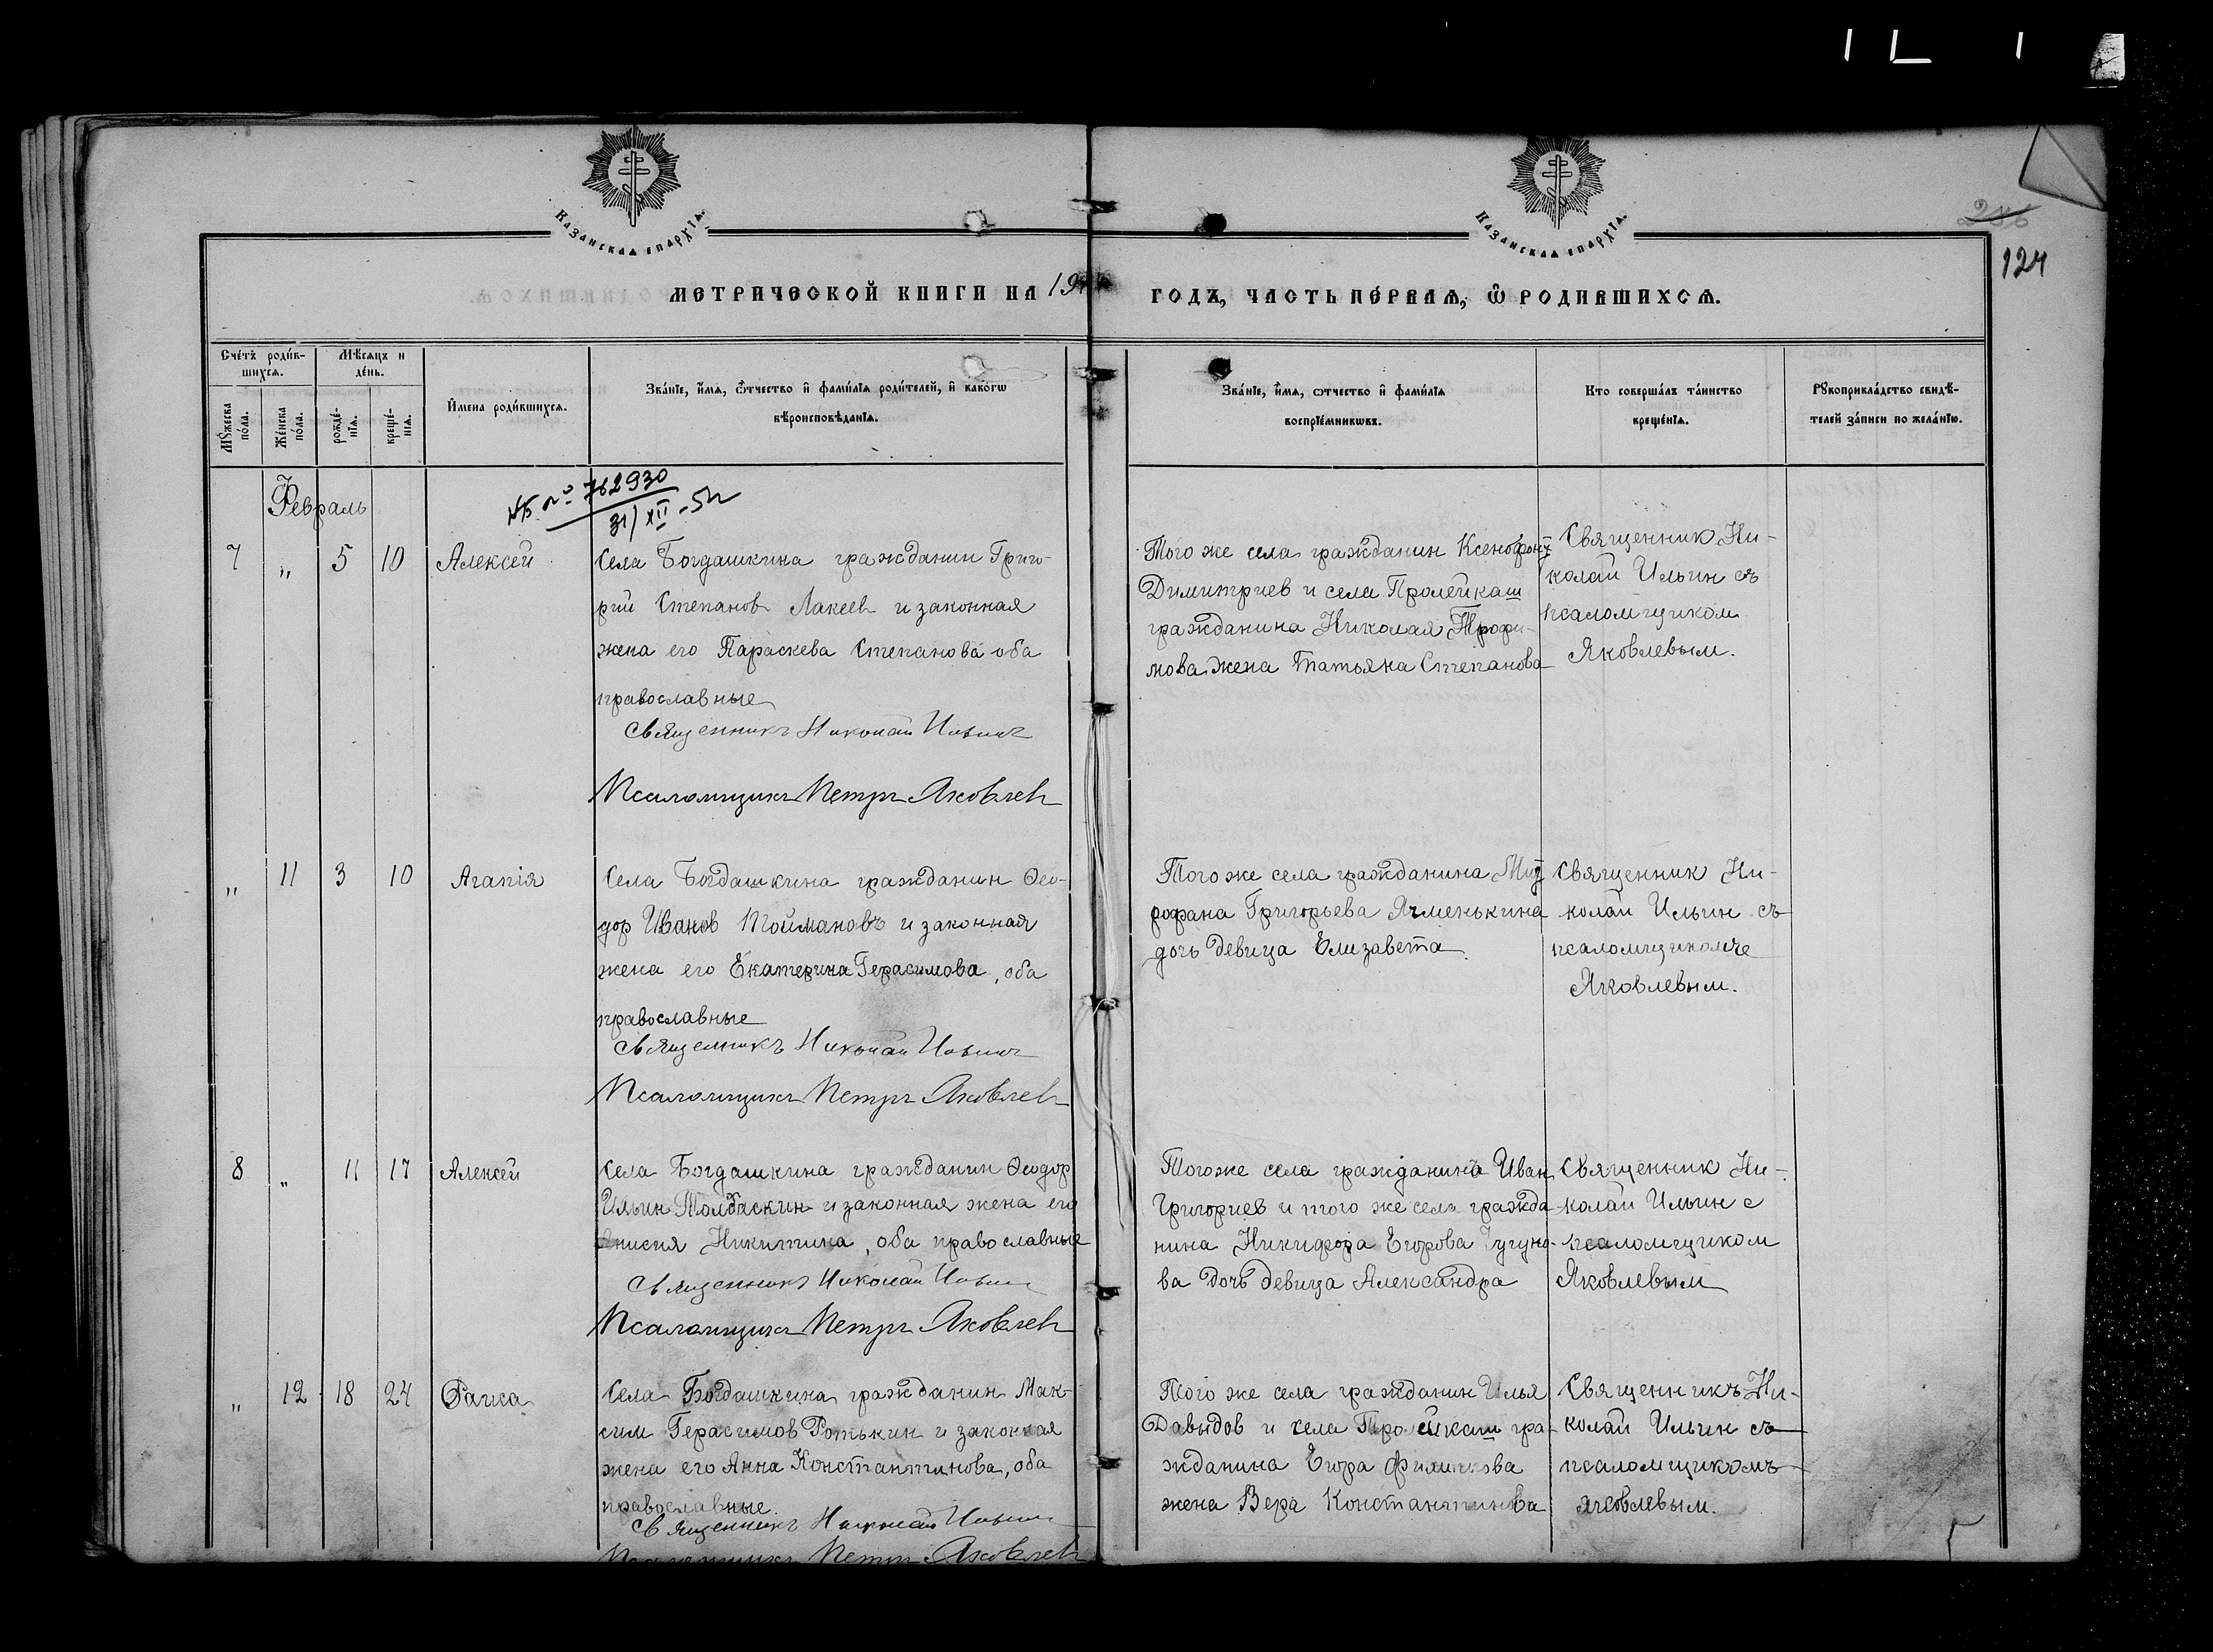 Казанская епархїя.
Казанская епархїя.
124
МЕТРИЧЕСКОЙ КНИГИ НА 19
ГОДЪ, ЧАСТЬ ПЕ́РВАЯ, Ѽ РОДИВШИХСЯ.
Сче́тъ роди́в-
шихся.
Мѣ́сяцъ и
де́нь.
Мꙋжеска
по́ла.
Же́нска
по́ла.
рожде́-
нїя.
креще́-
нїя.
И҆мена роди́вшихся.
Зва́нїе, и҆́мя, ѻ҆́тчество и҆ фами́лїя роди́телей, и҆ како́гѡ
вѣроисповѣ́данїя.
Зва́нїе, и҆́мя, ѻтчество и҆ фами́лїя
воспрїе́мниковъ.
Кто соверша́лъ та́инство
креще́нїя.
Рꙋкоприкла́дство свидѣ́-
телей за́писи по жела́нїю.
Февраль
№ 762930
31/XII-52
7 „ 5 10 Алексей
Села Богдашкина гражданин Григо-
рий Степанов Лакеев и законная
жена его Параскева Степанова оба
православные
Священникъ Николай Ильин
Псаломщикъ Петръ Яковлев
Того же села гражданин Ксенофонт
Димитриев и села Пролейкаш
гражданина Николая Трофи-
мова жена Татьяна Степанова
Священник Ни-
колай Ильин съ
псаломщиком
Яковлевым.
„ 11 3 10 Агапія
Села Богдашкина гражданин Ѳео-
дор Иванов Тоймановъ и законная
жена его Екатерина Герасимова, оба
православные
Священникъ Николай Ильин
Псаломщикъ Петръ Яковлев
Того же села гражданина Мит
рофана Григорьева Ячменькина
дочь девица Елизавета.
Священник Ни-
колай Ильин съ
Яковлевым.
8 „ 11 17 Алексей
Села Богдашкина гражданин Ѳеодор
Ильин Толбаскин и законная жена его
Анисия Никитина, оба православные
Священникъ Николай Ильин
Псаломщикъ Петръ Яковлев
Того же села гражданина Иван
Григориев и того же села гражда-
нина Никифора Егорова Чугуно-
ва дочь девица Александра
Священник Ни-
колай Ильин с
псаломщиком
Яковлевым
„ 12 18 24 Фаина
Села Богдашкина гражданин Мак-
сим Герасимов Ротькин и законная
жена его Анна Константинова, оба
православные.
Священникъ Николай Ильин
Псаломщикъ Петръ Яковлев
Того же села гражданин Илья
Давыдов и села Пролейкаш гра-
жданина Егора Филиппова
жена Вера Константинова
Священникъ Ни-
колай Ильин съ
псаломщикомъ
Яковлевым.